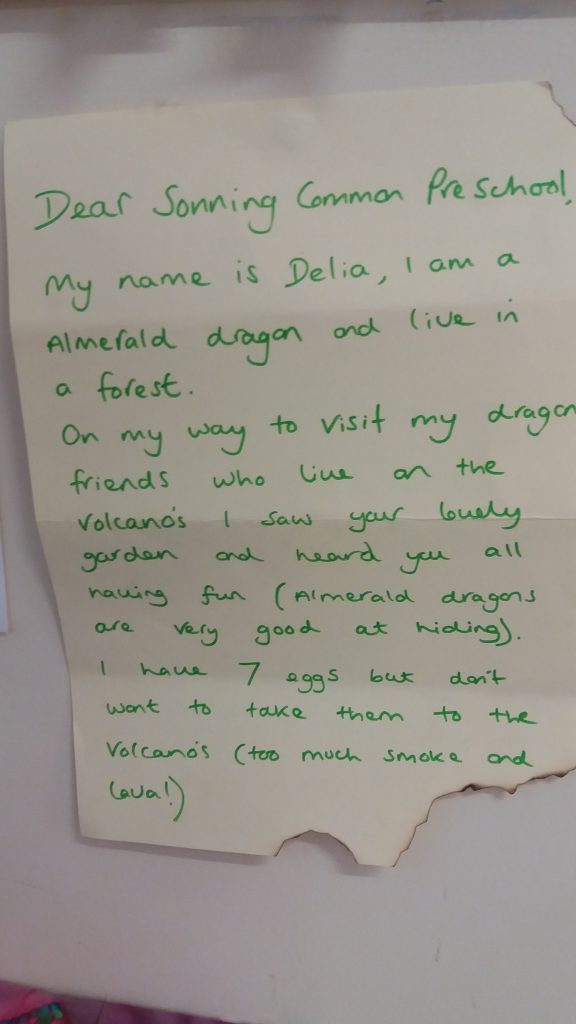 Dear Sonning Common Preschool,
My name is Delia, I am a
Almerald dragon and live in
a forest.
On my way to visit my dragon
friends who live on the
Volcano's I saw your lovely
garden and heard you all
having fun (Almerald dragons
are very good at hiding).
I have 7 eggs but don't
want to take them to the
Volcano's (too much smoke and
lava!)